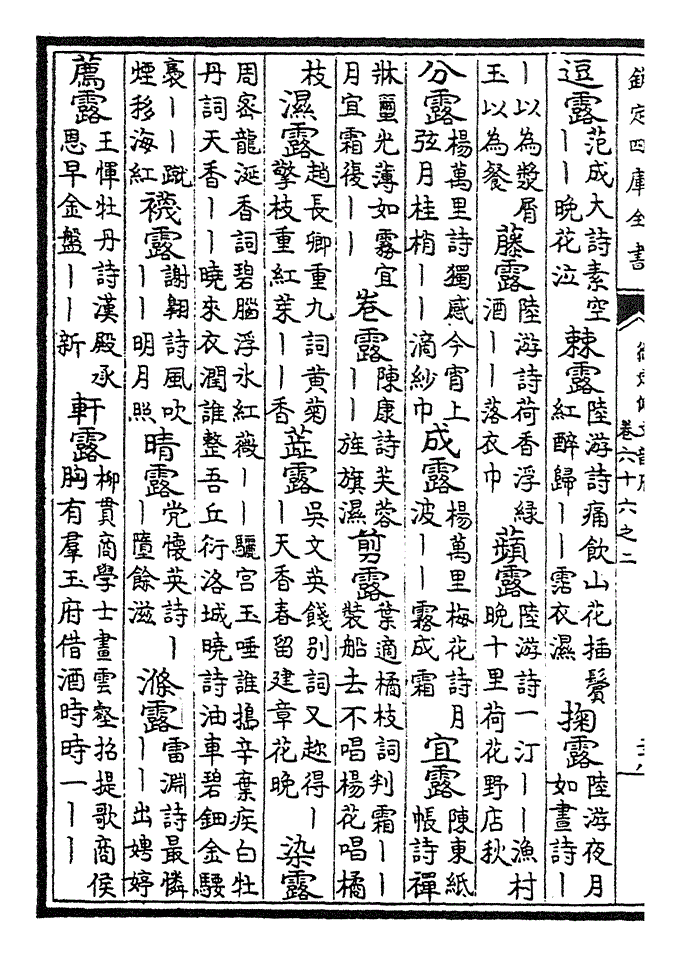 欽定四庫全書
卷六十六之二
逗露范成大詩素空｜｜晚花泣棘露陸游詩痛飲山花插鬢紅醉歸｜｜霑衣濕掬露陸游夜月如晝詩｜
｜以為漿屑玉以為餐藤露陸游詩荷香浮緑酒｜｜落衣巾蘋露陸游詩一汀｜｜漁村晚十里荷花野店秋
分露楊萬里詩獨感今宵上弦月桂梢｜｜滴紗巾成露楊萬里梅花詩月波｜｜霧成霜宜露陳東紙帳詩禪
牀蠒光薄如霧宜月宜霜復｜｜卷露陳康詩芙蓉｜｜旌旗濕剪露葉適橘枝詞判霜｜｜裝船去不唱楊花唱橘
枝濕露趙長卿重九詞黄菊擎枝重紅茱｜｜香蘸露吳文英餞别詞又趂得｜｜天香春留建章花晚染露
周密龍涎香詞碧腦浮氷紅薇｜｜驪宫玉唾誰搗辛棄疾白牡丹詞天香｜｜曉來衣潤誰整吾丘衍洛城曉詩油車碧鈿金騕
褭｜｜蹴煙移海紅襪露謝翺詩風吹｜｜明月照晴露党懷英詩｜｜墮餘滋滌露雷淵詩最憐｜｜出娉婷
薦露王惲牡丹詩漢殿承恩早金盤｜｜新軒露柳貫商學士畫雲壑招提歌商侯胸有羣玉府借酒時時一｜｜